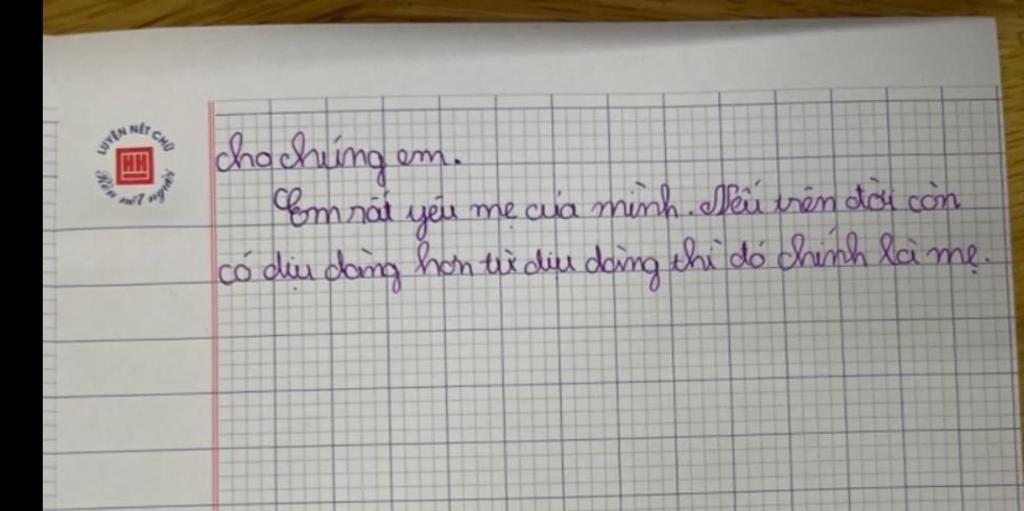 LUYỆN NÉT CHỮ
HH
Rèn nết người
cho chúng em.
Em rất yêu mẹ của mình. Nếu trên đời còn
có dịu dàng hơn từ dịu dàng thì đó chính là mẹ.